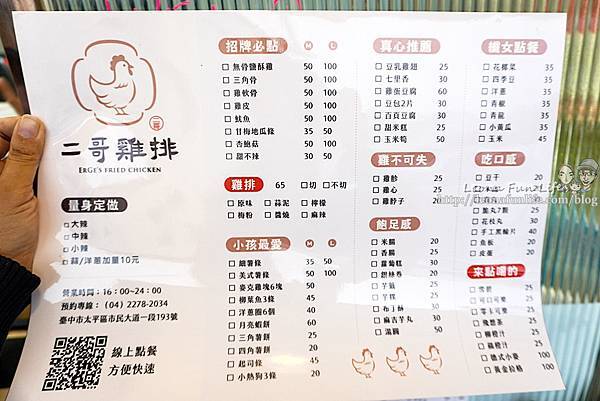 二哥雞排
ERGE'S FRIED CHICKEN
量身定做
□大辣
□中辣
□小辣
□蒜/洋蔥加量10元
營業時間：16：00~24：00
預約專線：(04) 2278-2034
臺中市太平區市民大道一段193號
線上點餐
方便快速
招牌必點 M L
□ 無骨鹽酥雞 50 100
□ 三角骨 50 100
□ 雞軟骨 50 100
□ 雞皮 50 100
□ 魷魚 50 100
□ 甘梅地瓜條 35 50
□ 杏鮑菇 50 100
□ 甜不辣 35 50
雞排 65 □切 □不切
□ 原味 □ 蒜泥 □ 檸檬
□ 梅粉 □ 醬燒 □ 麻辣
小孩最愛 M L
□ 細薯條 35 50
□ 美式薯條 35 50
□ 麥克雞塊6塊 50
□ 柳葉魚3條 50
□ 洋蔥圈6個 40
□ 月亮蝦餅 60
□ 三角薯餅 25
□ 四角薯餅 20
□ 起司條 45
□ 小熱狗3條 20
真心推薦
□ 豆乳雞翅 25
□ 七里香 30
□ 雞蛋豆腐 60
□ 豆包2片 30
□ 百頁豆腐 30
□ 甜米糕 25
□ 玉米筍 50
雞不可失
□ 雞胗
□ 雞心
□ 雞脖子
飽足感
□ 米腸
□ 香腸
□ 蘿蔔糕 30
□ 銀絲卷 20
□ 芋籤 25
□ 芋粿 25
□ 布丁酥 30
□ 麻吉芋丸 30
□ 湯圓 50
纖女點餐
□ 花椰菜 35
□ 四季豆 35
□ 洋蔥 35
□ 青椒 35
□ 青龍 35
□ 小黃瓜 35
□ 玉米 45
吃口感
□ 豆干
□ 脆丸7顆
□ 花枝丸
□ 手工黑輪片 40
□ 魚板 20
□ 皮蛋 20
來點喝的
□ 雪碧 25
□ 可口可樂 25
□ 零卡可樂 25